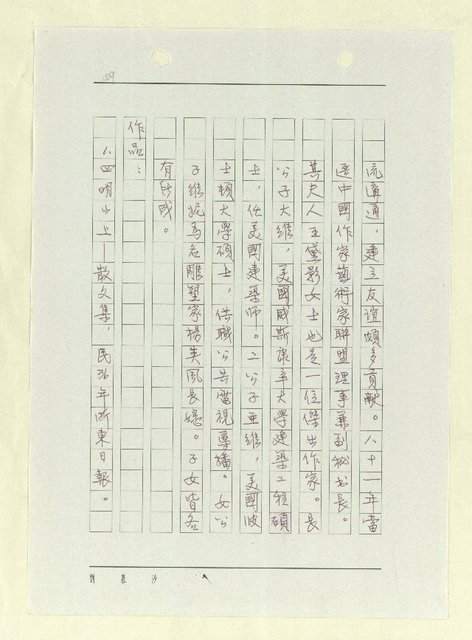 流溝通，建立友誼頗多貢獻。八十一年當
選中國作家藝術家聯盟理事兼副秘書長。
其夫人王黛影女士也是一位傑出作家。長
公子大維，美國威斯康辛大學建築工程碩
士，任美國建築師。二公子亞維，美國波
士頓大學碩士，供職公共電視導播。女公
子維妮為名雕塑家楊英風長媳。子女皆各
有所成。
作品：
1. 四明山上—散文集，民36年浙東日報。